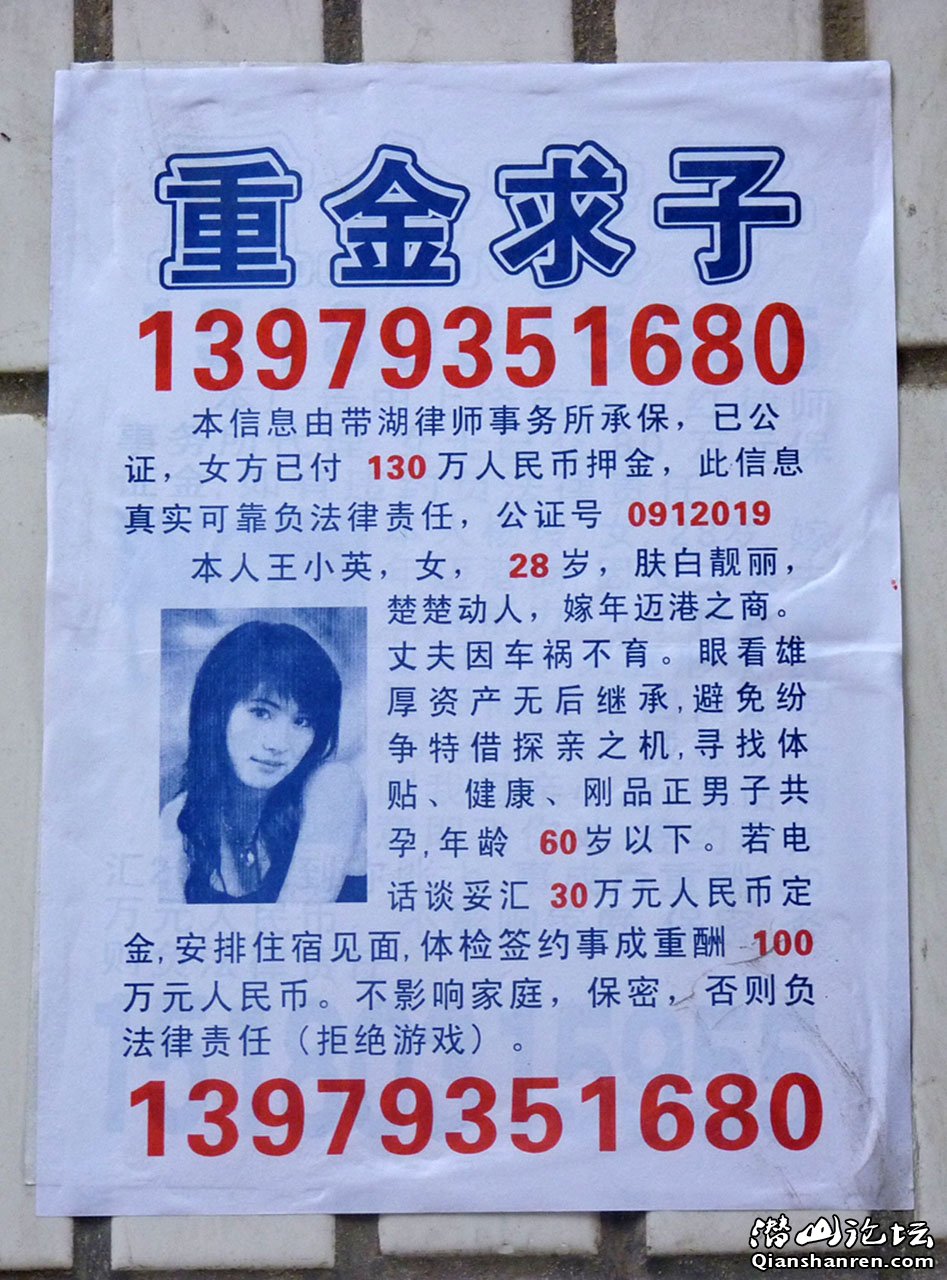 重金求子
13979351680
本信息由带湖律师事务所承保，已公
证，女方已付 130 万人民币押金，此信息
真实可靠负法律责任，公证号 0912019
本人王小英，女， 28 岁，肤白靓丽，
楚楚动人，嫁年迈港之商。
丈夫因车祸不育。眼看雄
厚资产无后继承,避免纷
争特借探亲之机,寻找体
贴、健康、刚品正男子共
孕,年龄 60岁以下。若电
话谈妥汇 30万元人民币定
金,安排住宿见面,体检签约事成重酬 100
万元人民币。不影响家庭，保密，否则负
法律责任（拒绝游戏）。
13979351680
潜山论坛
Qianshanren.com